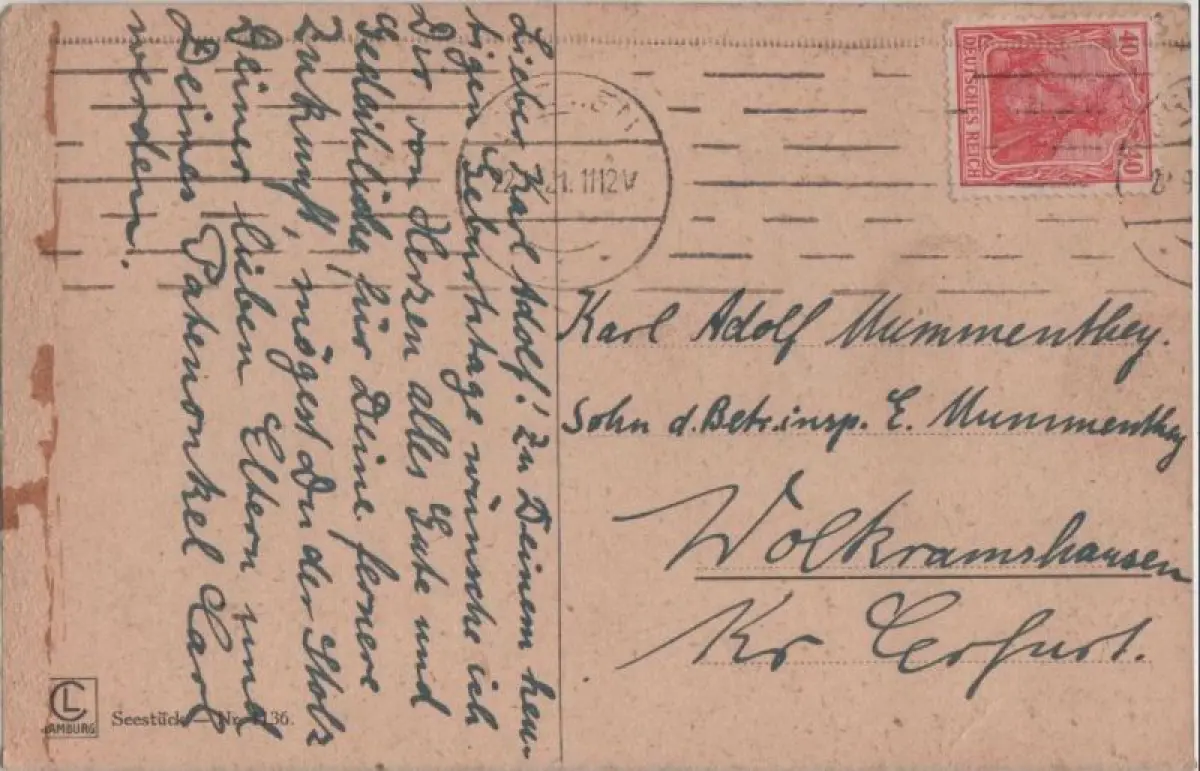 Lieber Karl Adolf! Zu Deinem heu-
tigen Geburtstage wünsche ich
Dir von Herzen alles Gute und
Gedeihliche, für Deine fernere
Zukunft, mögest Du der Stolz
Deiner lieben Eltern und
Deines Patenonkel Carl
werden.
40
40
DEUTSCHES REICH
22. 21. 11-12 V
Karl Adolf Mummenthey.
Sohn d. Betr. insp. E. Mummenthey
Wolkramshausen
Kr Erfurt.
CL
HAMBURG
Seestück — Nr. 1136.